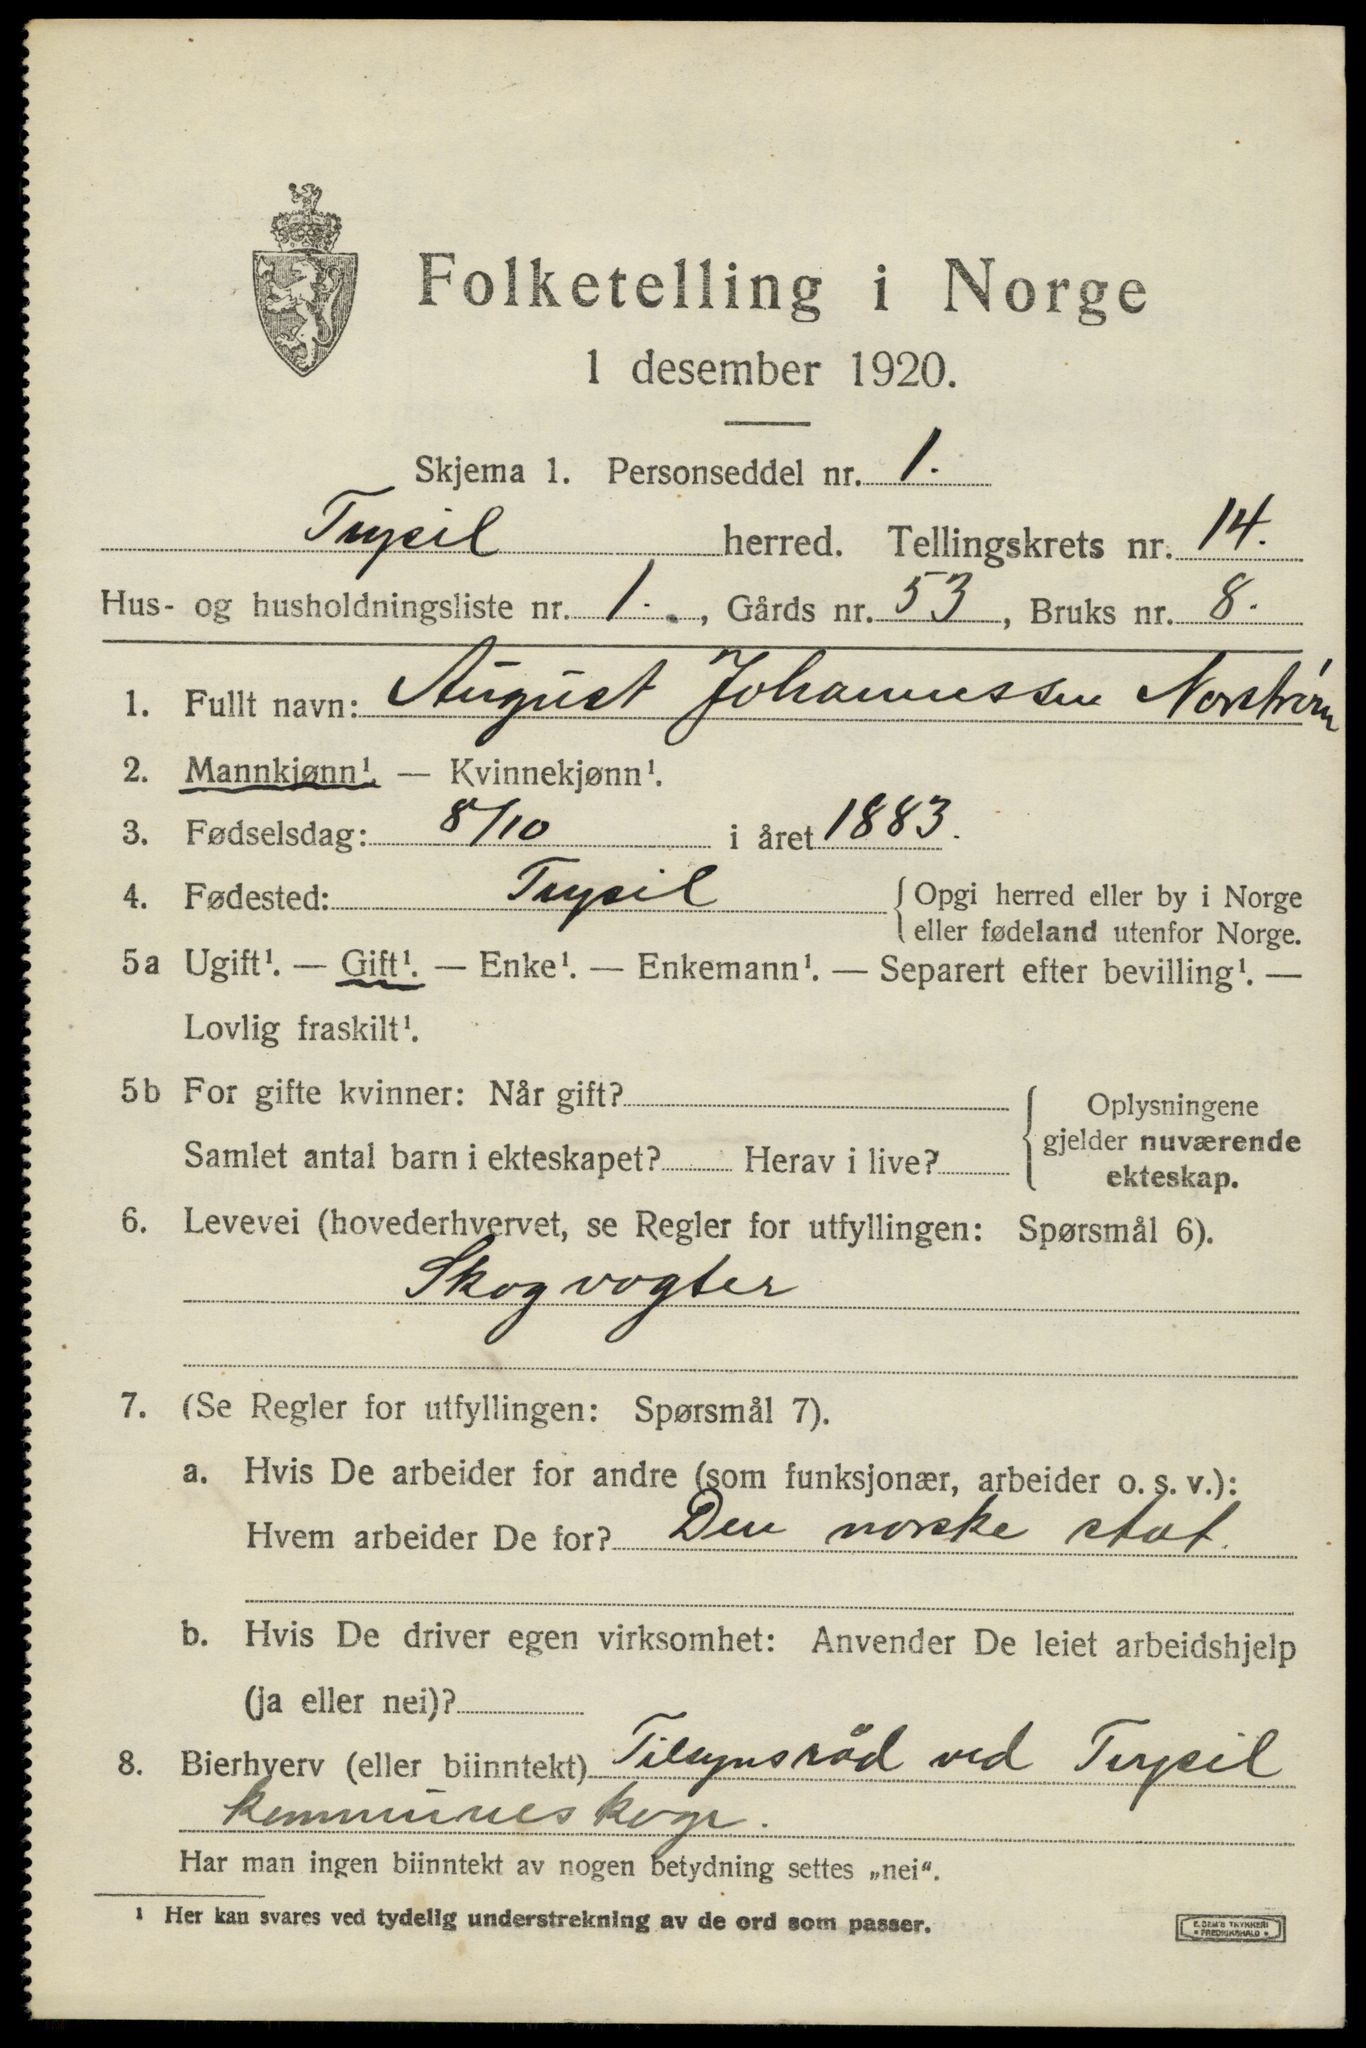 Folketelling i Norge
1 desember 1920.
Skjema 1. Personseddel nr. 1.
Trysil herred. Tellingskrets nr. 14.
Hus- og husholdningsliste nr. 1., Gårds nr. 53, Bruks nr. 8.
1. Fullt navn: August Johannessen Norstrøm
2. Mannkjønn¹. — Kvinnekjønn¹.
3. Fødselsdag: 8/10 i året 1883.
4. Fødested: Trysil { Opgi herred eller by i Norge
eller fødeland utenfor Norge.
5a Ugift¹. — Gift¹. — Enke¹. — Enkemann¹. — Separert efter bevilling¹. —
Lovlig fraskilt¹.
5b For gifte kvinner: Når gift?
Samlet antal barn i ekteskapet? Herav i live?
Oplysningene
gjelder nuværende
ekteskap.
6. Levevei (hovederhvervet, se Regler for utfyllingen: Spørsmål 6).
Skogvogter
7. (Se Regler for utfyllingen: Spørsmål 7).
a. Hvis De arbeider for andre (som funksjonær, arbeider o. s. v.):
Hvem arbeider De for? Den norske stat.
b. Hvis De driver egen virksomhet: Anvender De leiet arbeidshjelp
(ja eller nei)?
8. Bierhverv (eller biinntekt) Tilsynsråd ved Trysil
kommuneskoge.
Har man ingen biinntekt av nogen betydning settes „nei“.
¹ Her kan svares ved tydelig understrekning av de ord som passer.
E. SEM'S TRYKKERI
FREDRIKSHALD